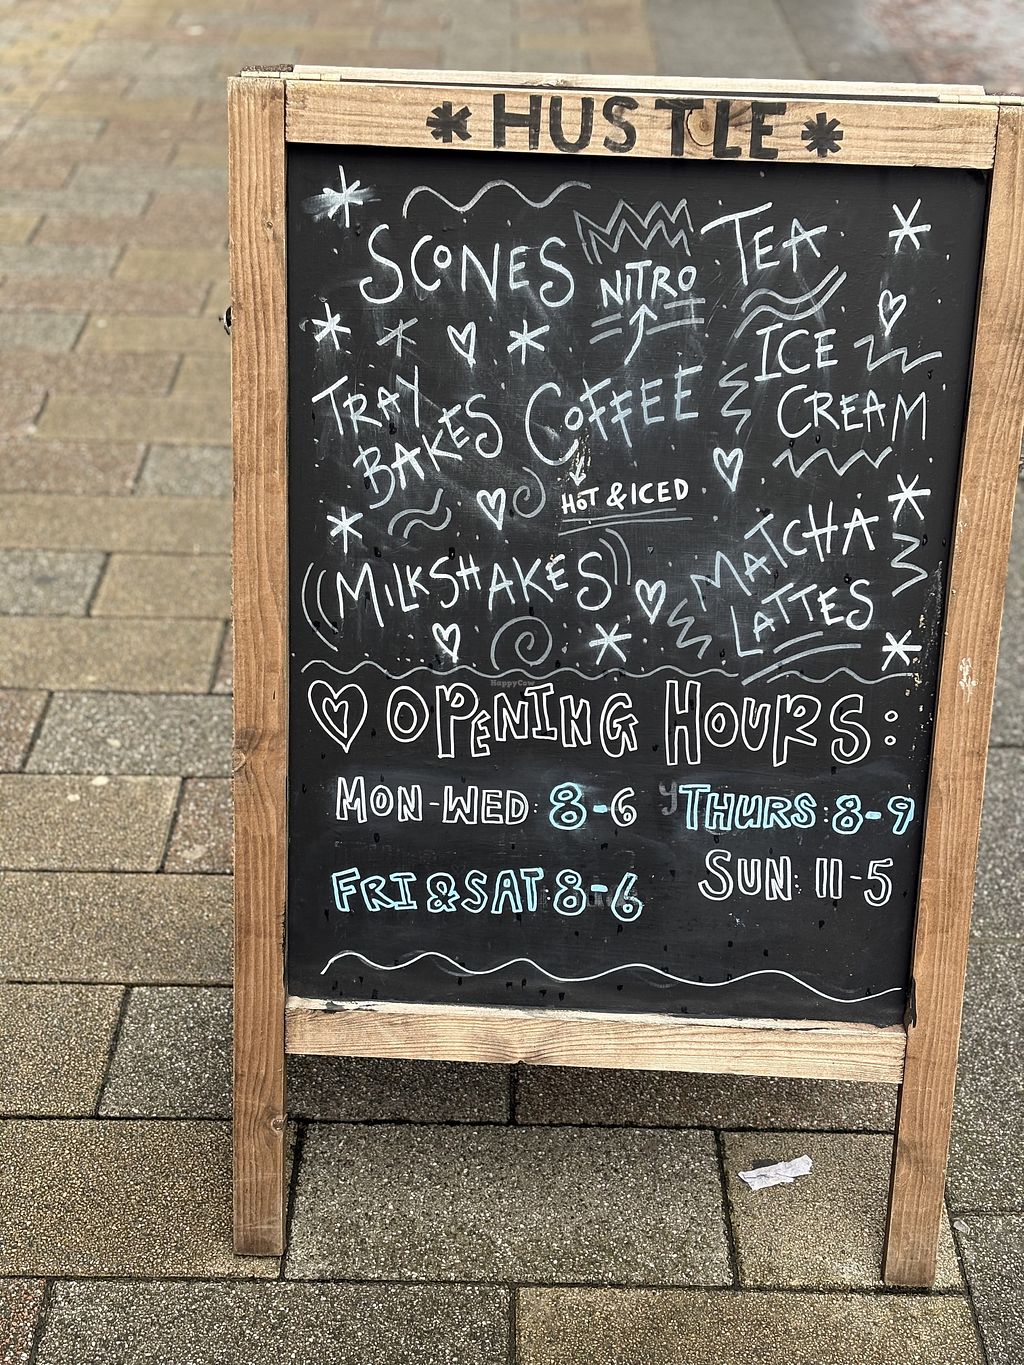 * HUSTLE *
SCONES
NITRO
TEA
TRAY
BAKES
COFFEE
HOT & ICED
ICE
CREAM
MILKSHAKES
MATCHA
LATTES
HappyCow
OPENING HOURS:
MON-WED: 8-6
THURS: 8-9
FRI & SAT: 8-6
SUN: 11-5